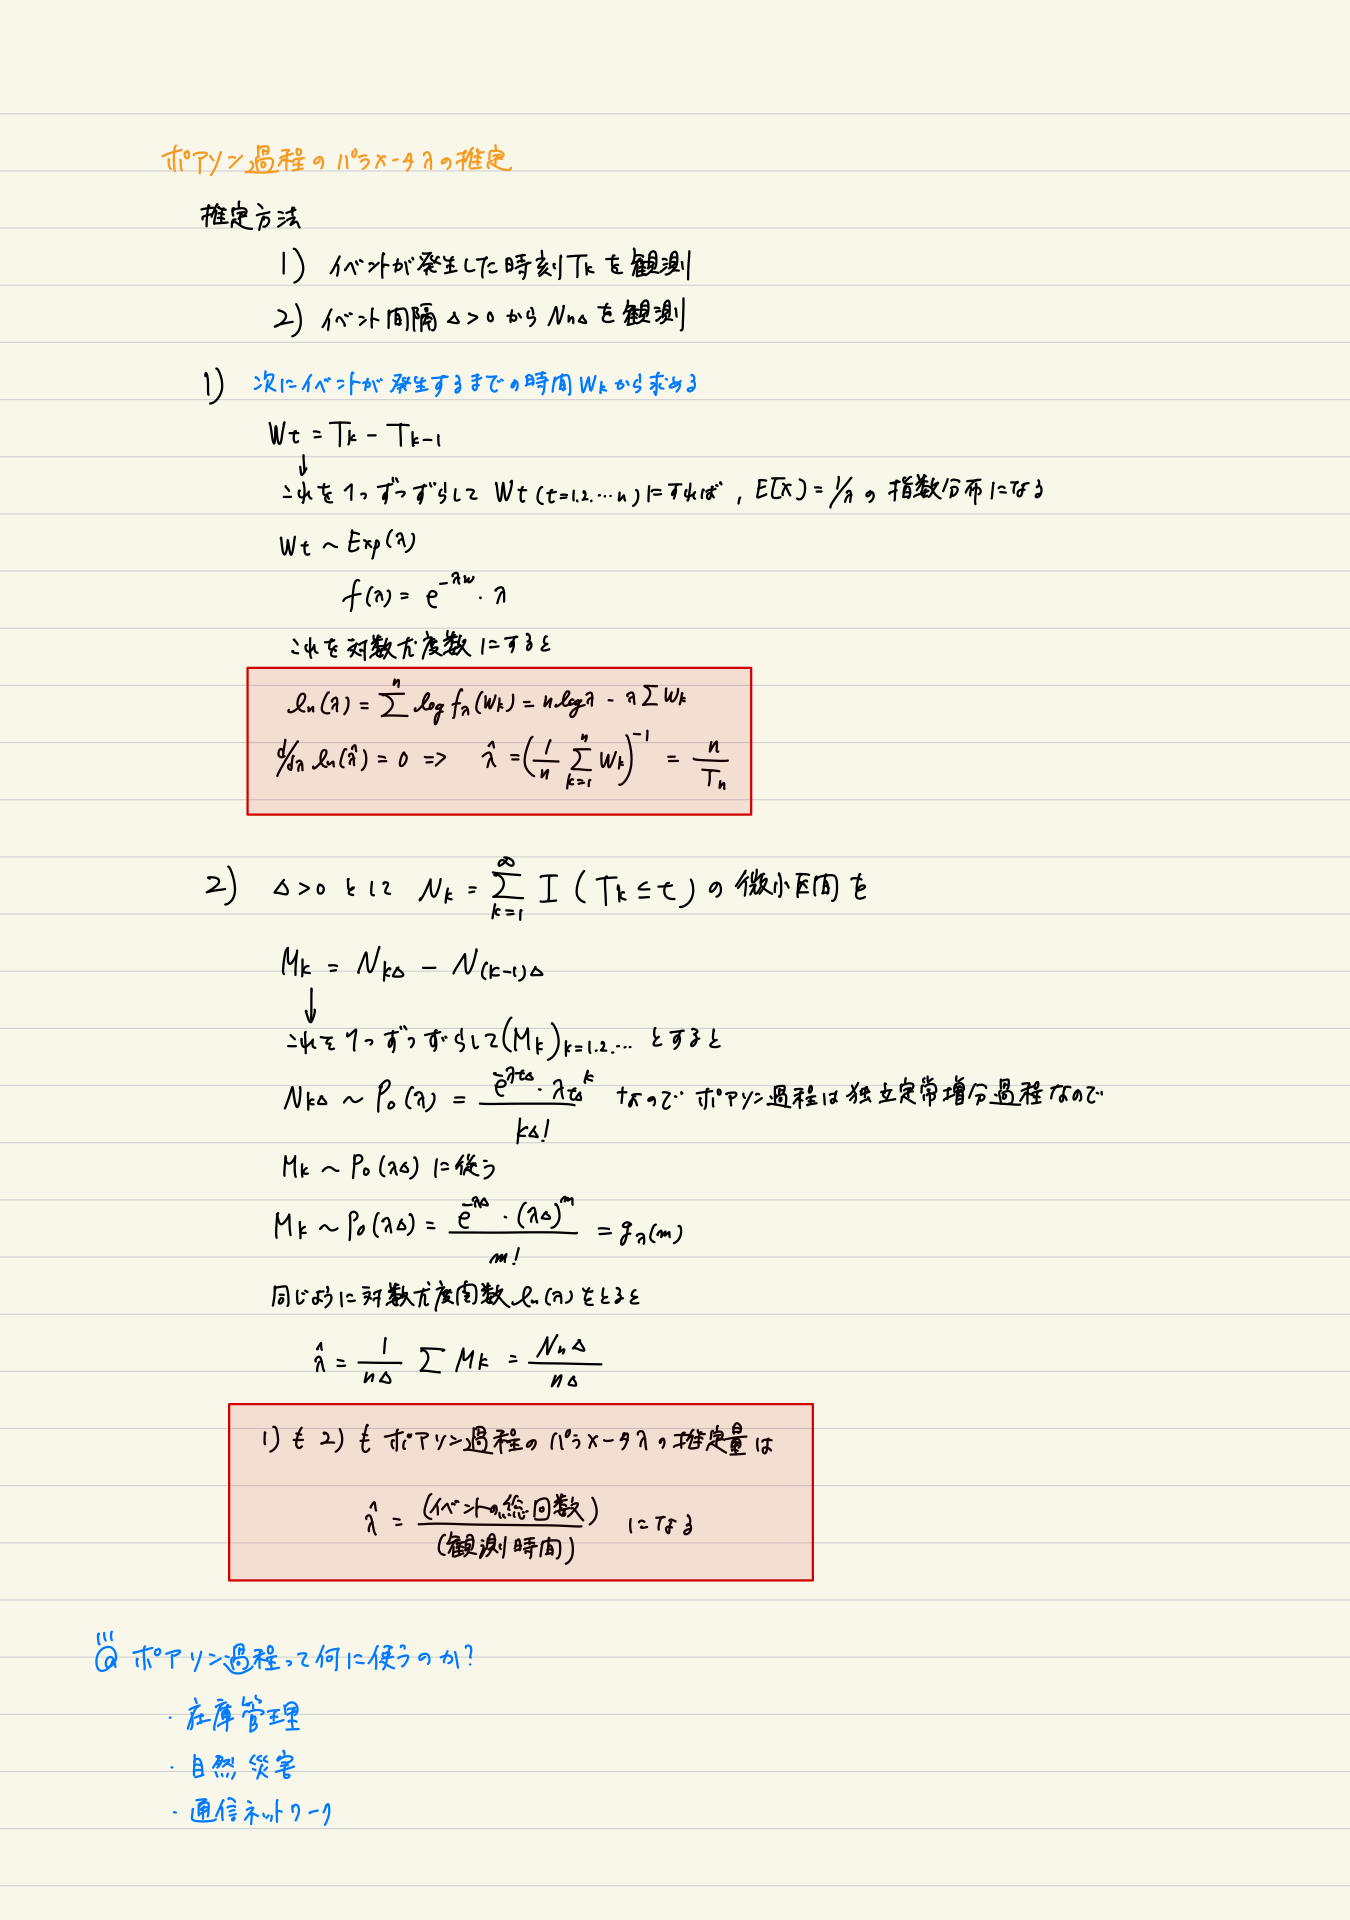 ポアソン過程のパラメータλの推定
推定方法
1) イベントが発生した時刻Tkを観測
2) イベント間隔 Δ>0 から NnΔ を観測
1) 次にイベントが発生するまでの時間Wkから求める
Wt = Tk - Tk-1
↓
これを1つずつずらして Wt (t=1.2.…n) にすれば, E[X) = 1/λ の指数分布になる
Wt ~ Exp(λ)
f(λ) = e^{-λw} · λ
これを対数尤度数にすると
ln(λ) = Σ^n log fλ(Wk) = n logλ - λΣWk
d/dλ ln(λ̂) = 0 => λ̂ = (1/n Σ_{k=1}^n Wk)^{-1} = n/Tn
2) Δ>0 として Nk = Σ_{k=1}^∞ I (Tk ≤ t) の微小区間を
Mk = NkΔ - N(k-1)Δ
↓
これを1つずつずらして(Mk)k=1.2.… とすると
NkΔ ~ Po(λ) = e^{-λtΔ} · λtΔ^k / kΔ! なので ポアソン過程は独立定常増分過程なので
Mk ~ Po(λΔ) に従う
Mk ~ Po(λΔ) = e^{-λΔ} · (λΔ)^m / m! = gλ(m)
同じように対数尤度関数ln(λ)をとると
λ̂ = 1/nΔ Σ Mk = NnΔ/nΔ
1)も2)もポアソン過程のパラメータλの推定量は
λ̂ = (イベントの総回数)/(観測時間) になる
Q ポアソン過程って何に使うのか?
・在庫管理
・自然災害
・通信ネットワーク